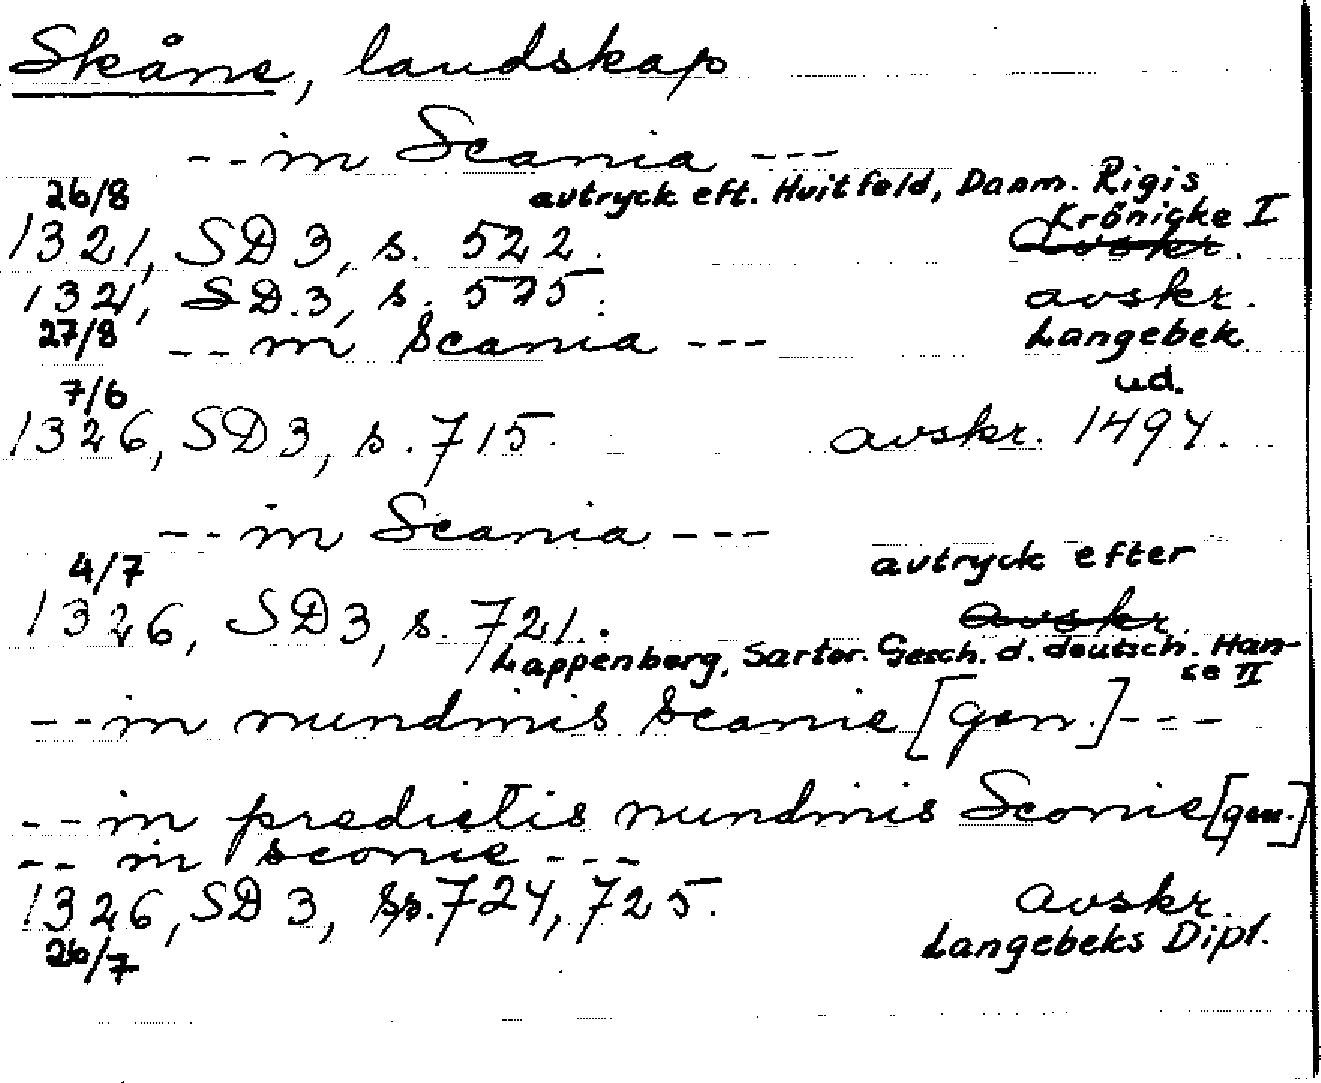 Skåne, landskap
-- in Scania ---
26/8 avtryck eft. Huitfeld, Danm. Rigis
Krönigke I
1321, SD 3, s. 522. avskr.
1321, SD. 3, s. 525. avskr.
27/8 -- in Scania --- Langebek
7/6 ud.
1326, SD 3, s. 715. avskr. 1494.
-- in Scania ---
4/7 avtryck efter
1326, SD 3, s. 721. avskr.
Lappenberg, Sartor. Gesch. d. deutsch. Han-
se II
-- in nundinis Scanie [gen.] ---
-- in predictis nundinis Sconie [gen.]
-- in Sconie ---
1326, SD 3, ss. 724, 725. avskr.
26/7 Langebeks Dipl.